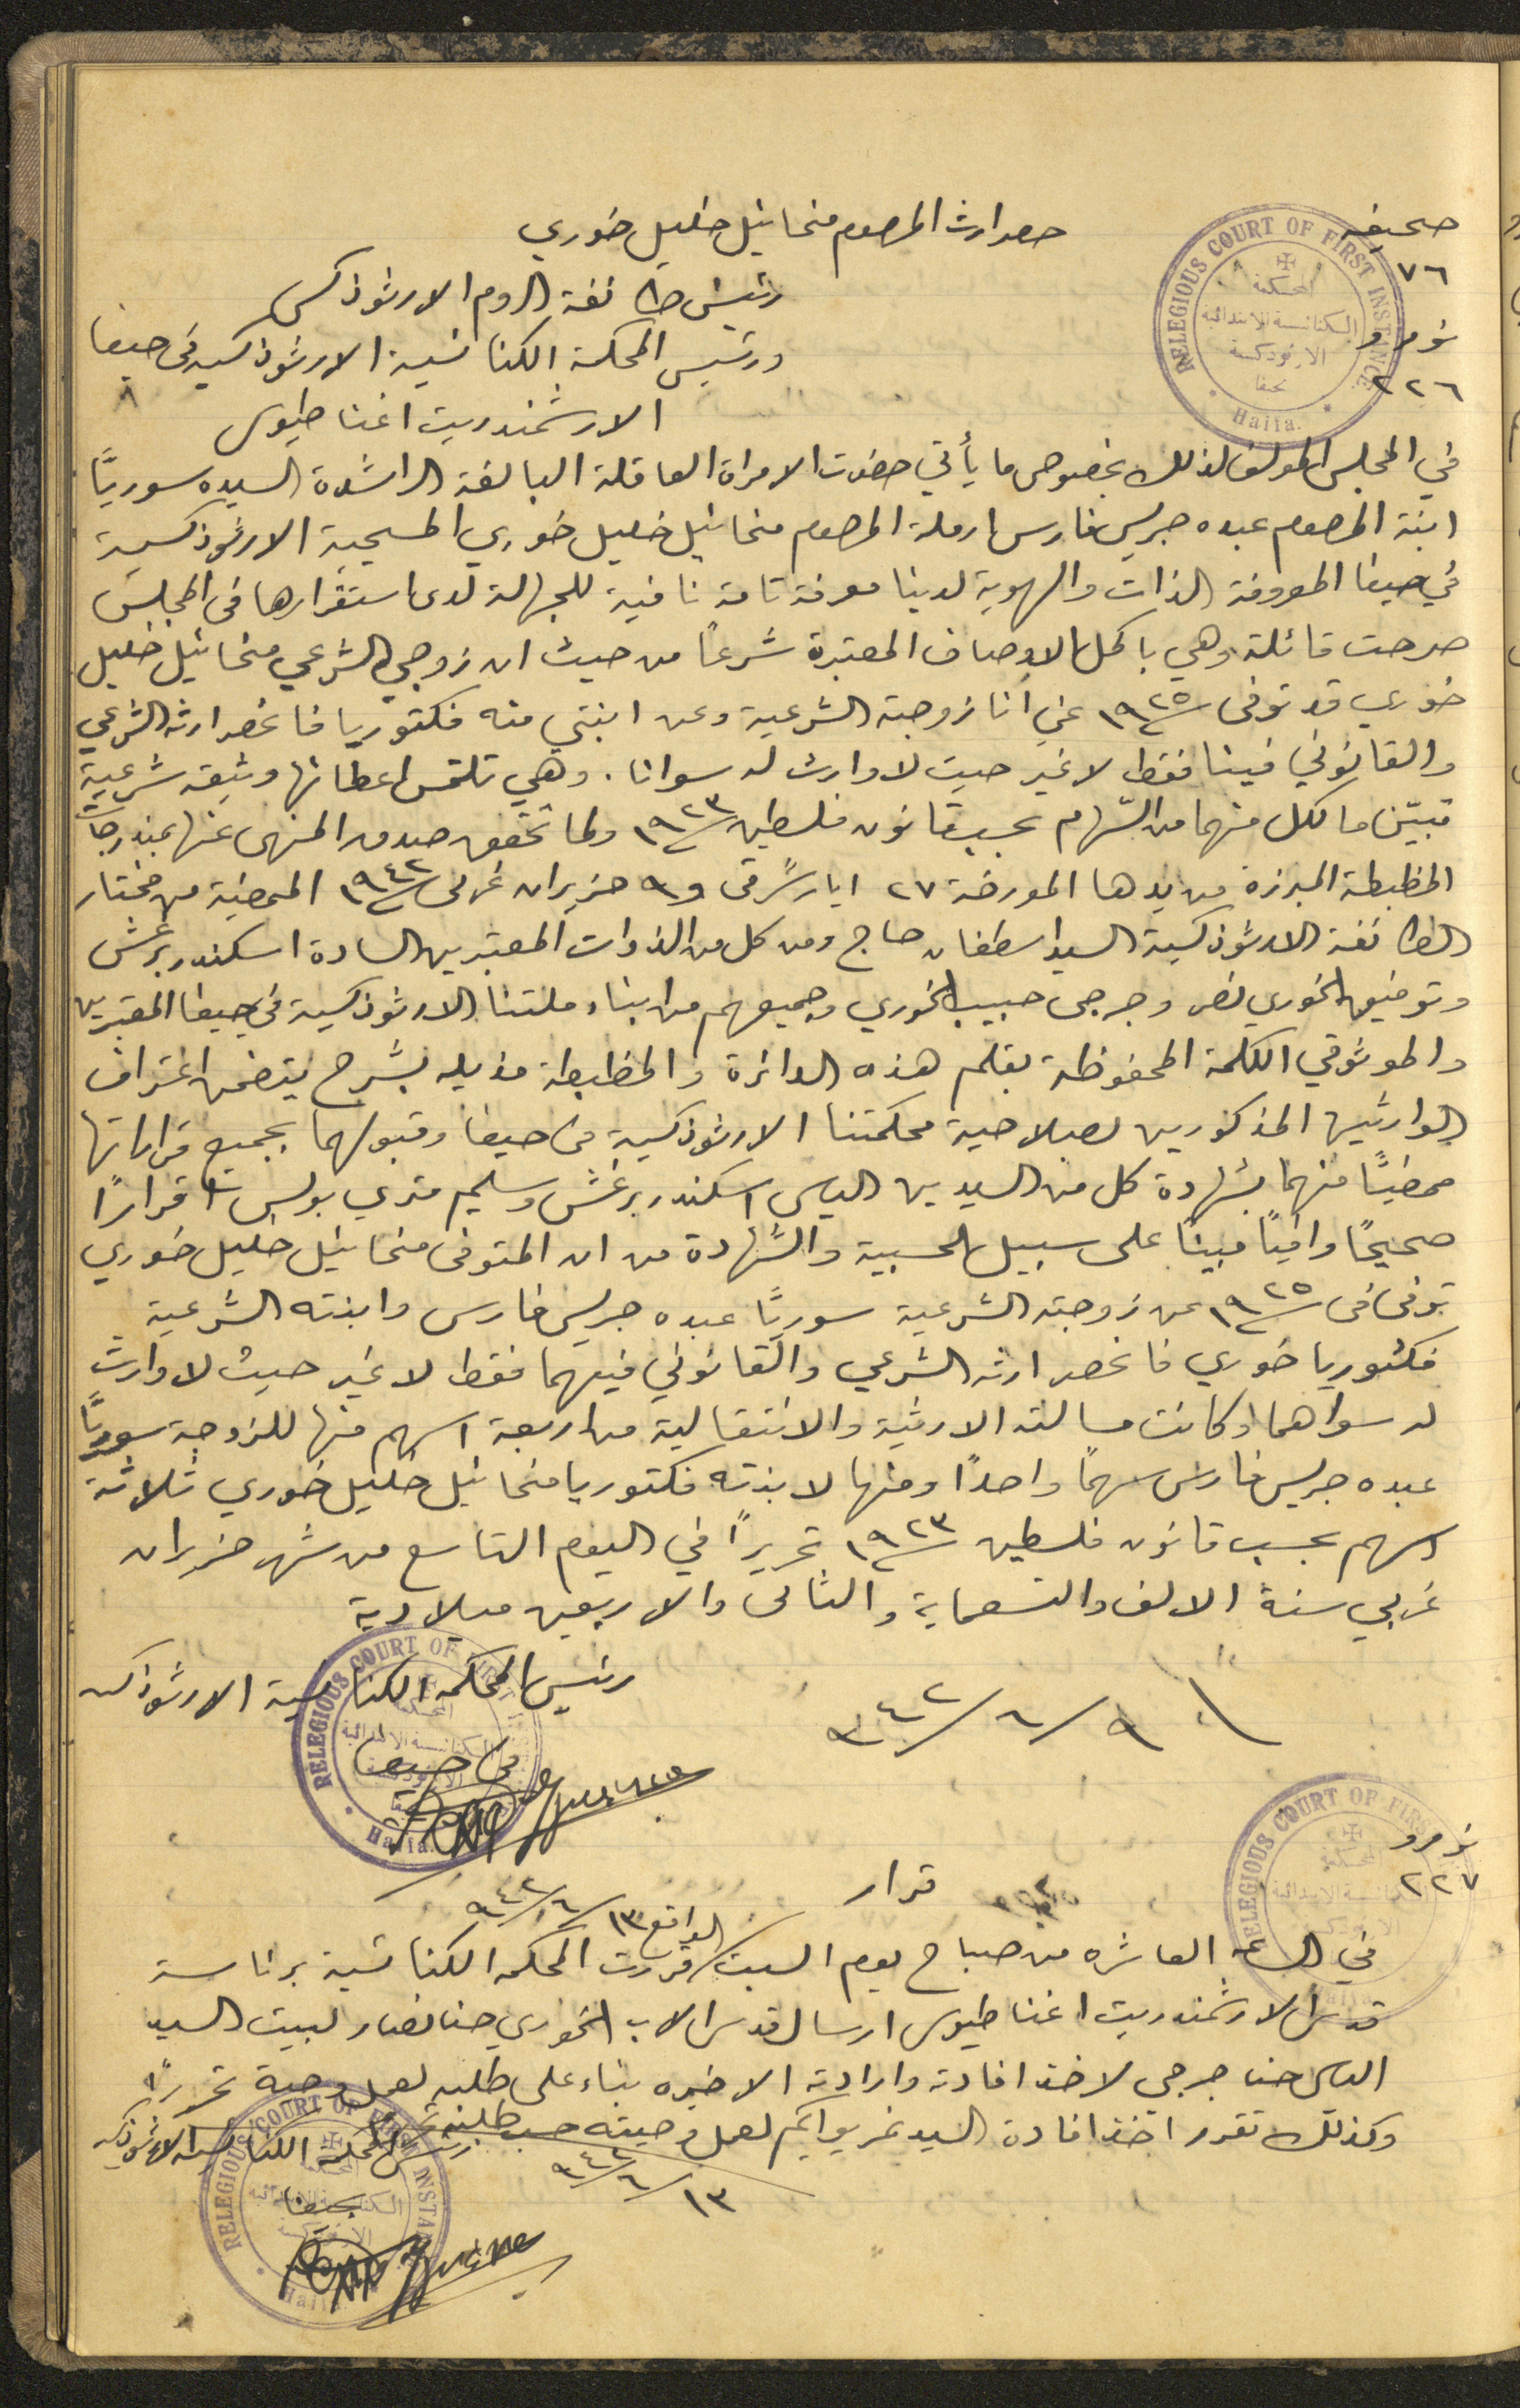 صحيفه
٧٦
حصر ارث المرحوم منخائيل خليل خوري
رئيس طائفة الروم الارثوذكس
نومرو
٢٢٦
ورئيس المحكمة الكنائسية الارثوذكسيه في حيفا
الارشمندريت اغناطيوس
RELEGIOUS COURT OF FIRST INSTANCE
المحكمة
الكنائسية الابتدائية
الارثوذكسية
بحيفا
Haifa.
في المجلس المولف لذلك بخصوص ما يأتي حضرت الامرأة العاقلة البالغة الراشدة السيده سوريّا
ابنة المرحوم عبده جريس فارس ارملة المرحوم منخائيل خليل خوري المسيحية الارثوذكسية
في حيفا المعروفة الذات والهوية لدينا معرفة تامة نافية للجهالة لدى استقرارها في المجلس
صرحت قائلة وهي باكمل الاوصاف المعتبرة شرعاً من حيث ان زوجي الشرعي منخائيل خليل
خوري قد توفى ١٩٢٥ عني انا زوجته الشرعية وعن ابنتي منه فكتوريا فانحصر ارثه الشرعي
والقانوني فينا فقط لا غير حيث لا وارث له سوانا. وهي تلتمس اعطائها وثيقة شرعية
تبيّن ما لكل منهما من السّهام بحسب قانون فلسطين ١٩٢٣ ولما تحقق صدق المنهى عنها بمندرجات
المظبطة المبرزة من يدها المورخة ٢٧ ايار شرقي و٩ حزيران غربي ١٩٤٢ الممضية من مختار
الطائفة الارثوذكسية السيد اسطفان حاج ومن كل من الذوات المعتبرين السادة اسكندر برغش
وتوفيق الخوري نصر وجرجي حبيب الخوري وجميعهم من ابناء ملتنا الارثوذكسية في حيفا المعتبرين
والموثوقي الكلمة المحفوظة بقلم هذه الدائرة والمظبطة مذيله بشرح يتضمن اعتراف
الوارثين المذكورين لصلاحية محكمتنا الارثوذكسية في حيفا وقبولهما بجميع قراراتها
ممضيًّا منهما بشهادة كل من السيدين الياس اسكندر برغش وسليم متري بولس اقراراً
صحيحًا وافيًا مبينًا على سبيل الحسبية والشّهادة من ان المتوفى منخائيل خليل خوري
توفى في ١٩٢٥ عن زوجته الشرعية سوريّا عبده جريس فارس وابنته الشرعية
فكتوريا خوري فانحصر ارثه الشرعي والقانوني فيهما فقط لا غير حيث لا وارث
له سواهما وكانت مسالته الارثية والانتقالية من اربعة اسهم منها للزوجة سوريّا
عبده جريس فارس سهماً واحداً ومنها لابنته فكتوريا منخائيل خليل خوري ثلاثة
اسهم بحسب قانون فلسطين ١٩٢٣ تحريراً في اليوم التاسع من شهر حزيران
غربي سنة الالف والتسعماية والثاني والاربعين ميلادية
رئيس المحكمه الكنائسية الارثوذكسيه
في حيفا
٩/٦/٩٤٢
RELEGIOUS COURT OF FIRST
الكنائسية الابتدائية
Haifa.
نومرو
٢٢٧
قرار
RELEGIOUS COURT OF FIRST
في الساعة العاشره من صباح يوم السبت الواقع ١٣/٦/٩٤٢ قررت المحكمه الكنائسية برئاسة
قدس الارشمندريت اغناطيوس ارسال قدس الاب الخوري حنا نصار لبيت السيد
الياس حنا جرجي لاخذ افادته وارادته الاخيره بناء على طلبه لعمل وصية تحريراً
وكذلك تقرر اخذ افادة السيد لعمل وصيته حسب طلبه
رئيس المحكمة الكنائسيه الارثوذكسيه
بحيفا
١٣/٦/٩٤٢
RELEGIOUS COURT OF FIRST INSTANCE
Haifa.